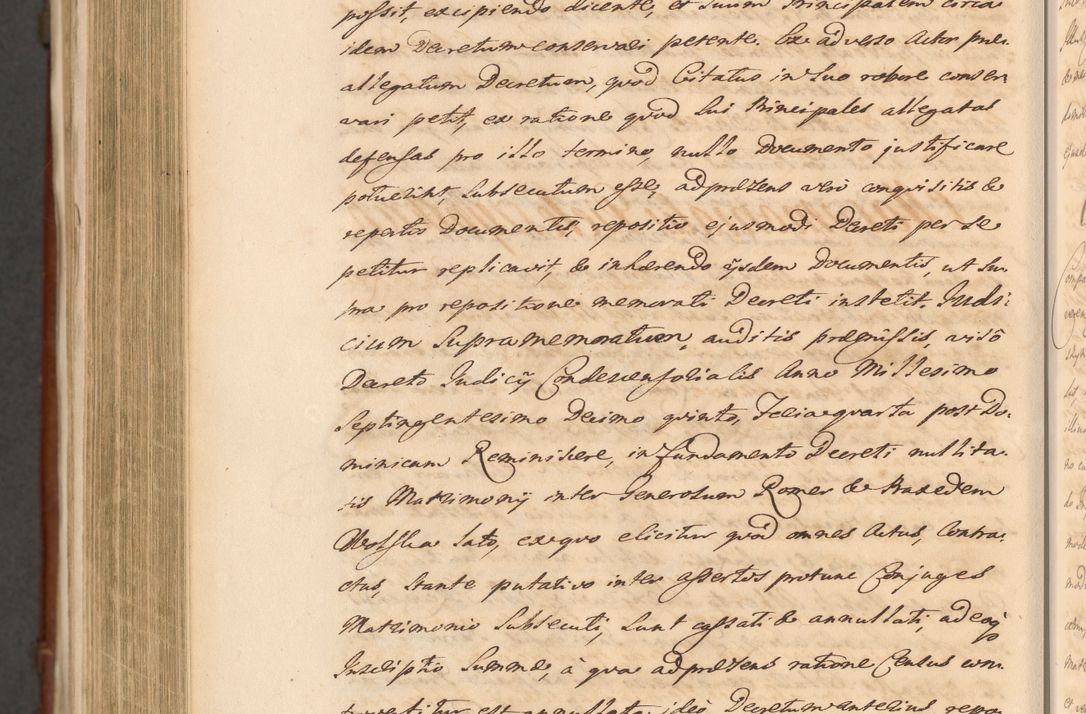 possit, excipiendo dicente, et Suum Principalem circa
idem Decretum conservari petente. Ex adverso Actor prae-
allegatum Decretum, quod Citatus in Suo robore conser-
vari petit, ex ratione quod Sui Principales allegatas
defensas pro illo termino, nullo Documento justificare
potuerint, Subsecutum esse, ad praesens vero conquisitis &
repertis Documentis, repositis ejusmodi Decreti per se
petitur replicavit, & inhaerendo ijsdem Documentis, ut Su-
pra pro repositione memorati Decreti institit. Judi-
cium Supra memoratum, auditis praemissis, viso
Decreto Judicij Condescensorialis Anno Millesimo
Septingentesimo Decimo quinto, Feria quarta post Do-
minicam Reminiscere, in fundamento Decreti nullita-
tis Matrimonij inter Generosum Romer & Praxedem
Wolska lato, ex quo elicitur quod omnes Actus, Contra-
ctus, Stante putativo inter assertos protunc Conjuges
Matrimonio Subsecuti, Sunt cassati & annullati, adeoq
Inscriptio Summae, à qua ad praesens ratione Census con-
trovertitur est annullata, ideo Decretum anterius repo-